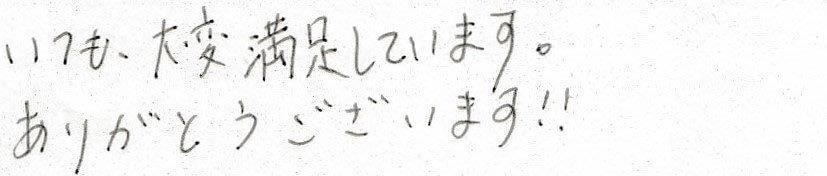 いつも、大変満足しています。
ありがとうございます!!